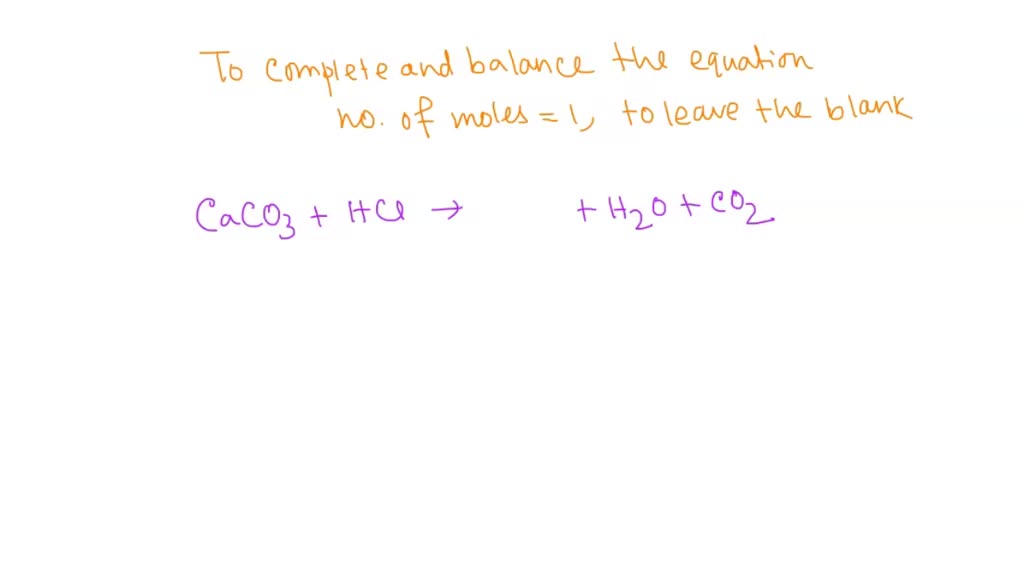 To complete and balance the equation
no. of moles = 1, to leave the blank
CaCO3 + HCl → + H2O + CO2